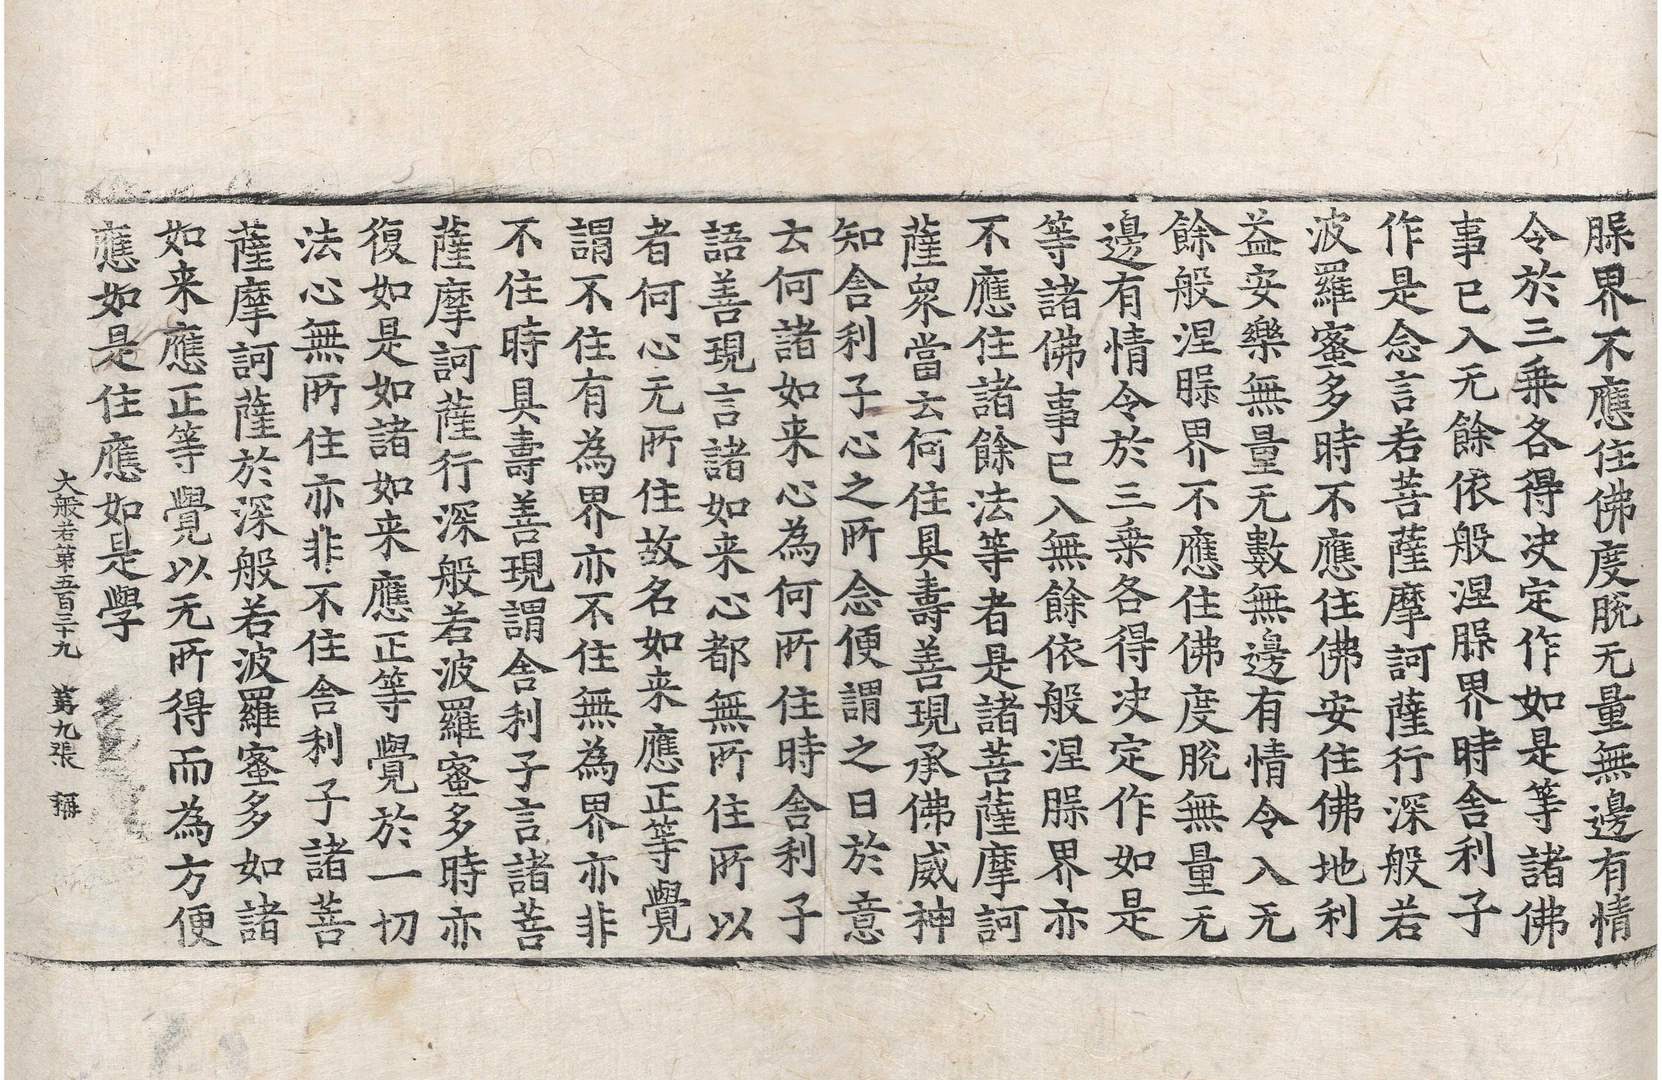 槃界不應住佛度脫无量無邊有情
令於三乗各得决定作如是等諸佛
事已入无餘依般涅槃界時舍利子
作是念言若菩薩摩訶薩行深般若
波羅蜜多時不應住佛安住佛地利
益安樂無量无數無邊有情令入无
餘般涅槃界不應住佛度脫無量无
邊有情令於三乗各得决定作如是
等諸佛事已入無餘依般涅槃界亦
不應住諸餘法等者是諸菩薩摩訶
薩衆當云何住具壽善現承佛威神
知舍利子心之所念便謂之曰於意
云何諸如来心為何所住時舍利子
語善現言諸如来心都無所住所以
者何心无所住故名如来應正等覺
謂不住有為界亦不住無為界亦非
不住時具壽善現謂舍利子言諸菩
薩摩訶薩行深般若波羅蜜多時亦
復如是如諸如来應正等覺於一切
法心無所住亦非不住舍利子諸菩
薩摩訶薩於深般若波羅蜜多如諸
如来應正等覺以无所得而為方便
應如是住應如是學
大般若第五百三十九 第九張 稱